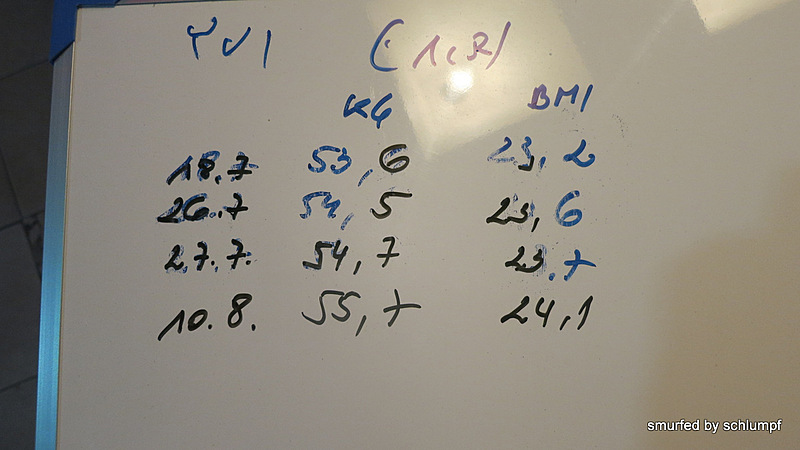 YVI (1,52)
KG BMI
18.7 53,6 23,2
26.7 54,5 23,6
27.7. 54,7 23,7
10.8. 55,7 24,1
smurfed by schlumpf